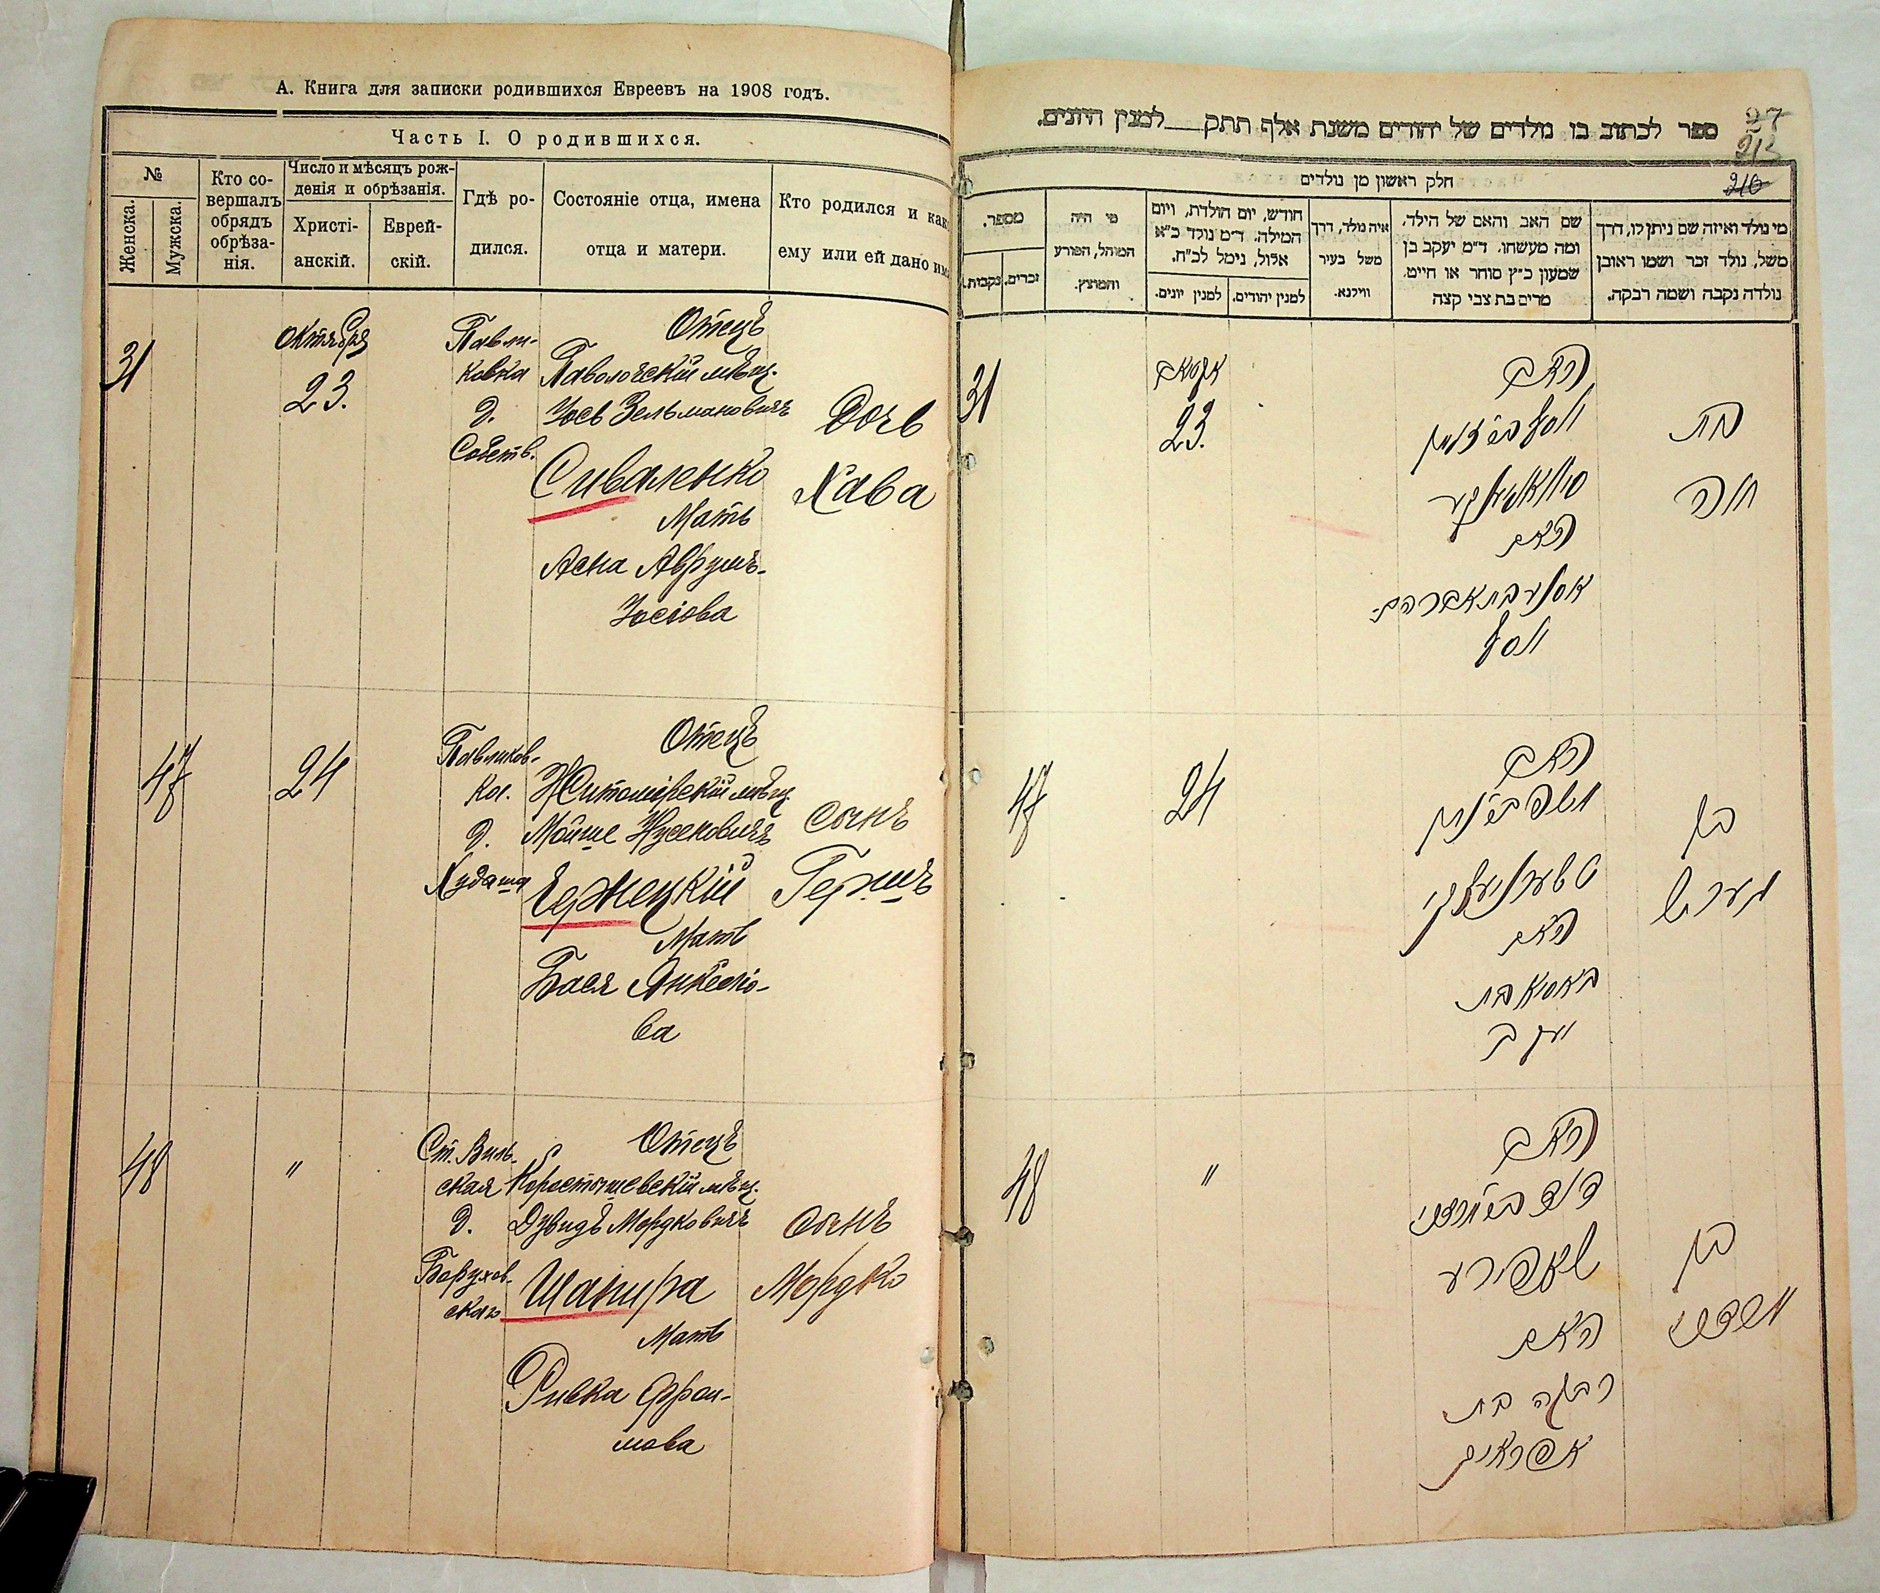 А. Книга для записки родившихся Евреевъ на 1908 годъ.
Часть I. О родившихся.
№
Женска.
Мужска.
Кто со-
вершалъ
обрядъ
обрѣза-
нія.
Число и мѣсяцъ рож-
денія и обрѣзанія.
Христі-
анскій.
Еврей-
скій.
Гдѣ ро-
дился.
Состояніе отца, имена
отца и матери.
Кто родился и как
ему или ей дано им
31
Октября
23.
Павли-
ковка
д.
Собств.
Отецъ
Паволочскій мѣщ.
Іось Зельмановичъ
Сиваленко
Мать
Асна Аврумъ-
Іосіова
Дочь
Хава
47
24
Павликов-
ка.
д.
Худаша
Отецъ
Житомірскій мѣщ.
Мойше Нусековичъ
Чержецкій
Мать
Бася Янкеліо-
ва
Сынъ
Гершъ
48
"
Ст. Виль-
ская
д.
Борухов-
скаго
Отецъ
Коростышевскій мѣщ.
Дувидъ Мордковичъ
Шапира
Мать
Ривка Фрои-
мова
Сынъ
Мордко
ספר לכתוב בו נולדים של יהודים משנת אלף תתק למנין היונים.
27
213
210
חלק ראשון מן נולדים
מספר.
זכרים.
נקבות.
מי היה
המוהל, הפורע
והמוצץ.
חודש, יום הולדת, ויום
המילה. ד״מ נולד כ״א
אלול, נימל לכ״ח.
למנין יונים.
למנין יהודים.
איה נולד, דרך
משל בעיר
ווילנא.
שם האב והאם של הילד,
ומה מעשהו. ד״מ יעקב בן
שמעון כ״ץ סוחר או חייט.
מרים בת צבי קצה
מי נולד ואיזה שם ניתן לו, דרך
משל, נולד זכר ושמו ראובן
נולדה נקבה ושמה רבקה.
31
23.
האב
יוסף
האם
אסנע בת אברהם
יוסף
בת
חוה
47
24
האב
משה
האם
באסיא בת
יעקב
בן
הערש
48
"
האב
דוד
שאפירע
האם
רבקה בת
אפראים
בן
מרדכי